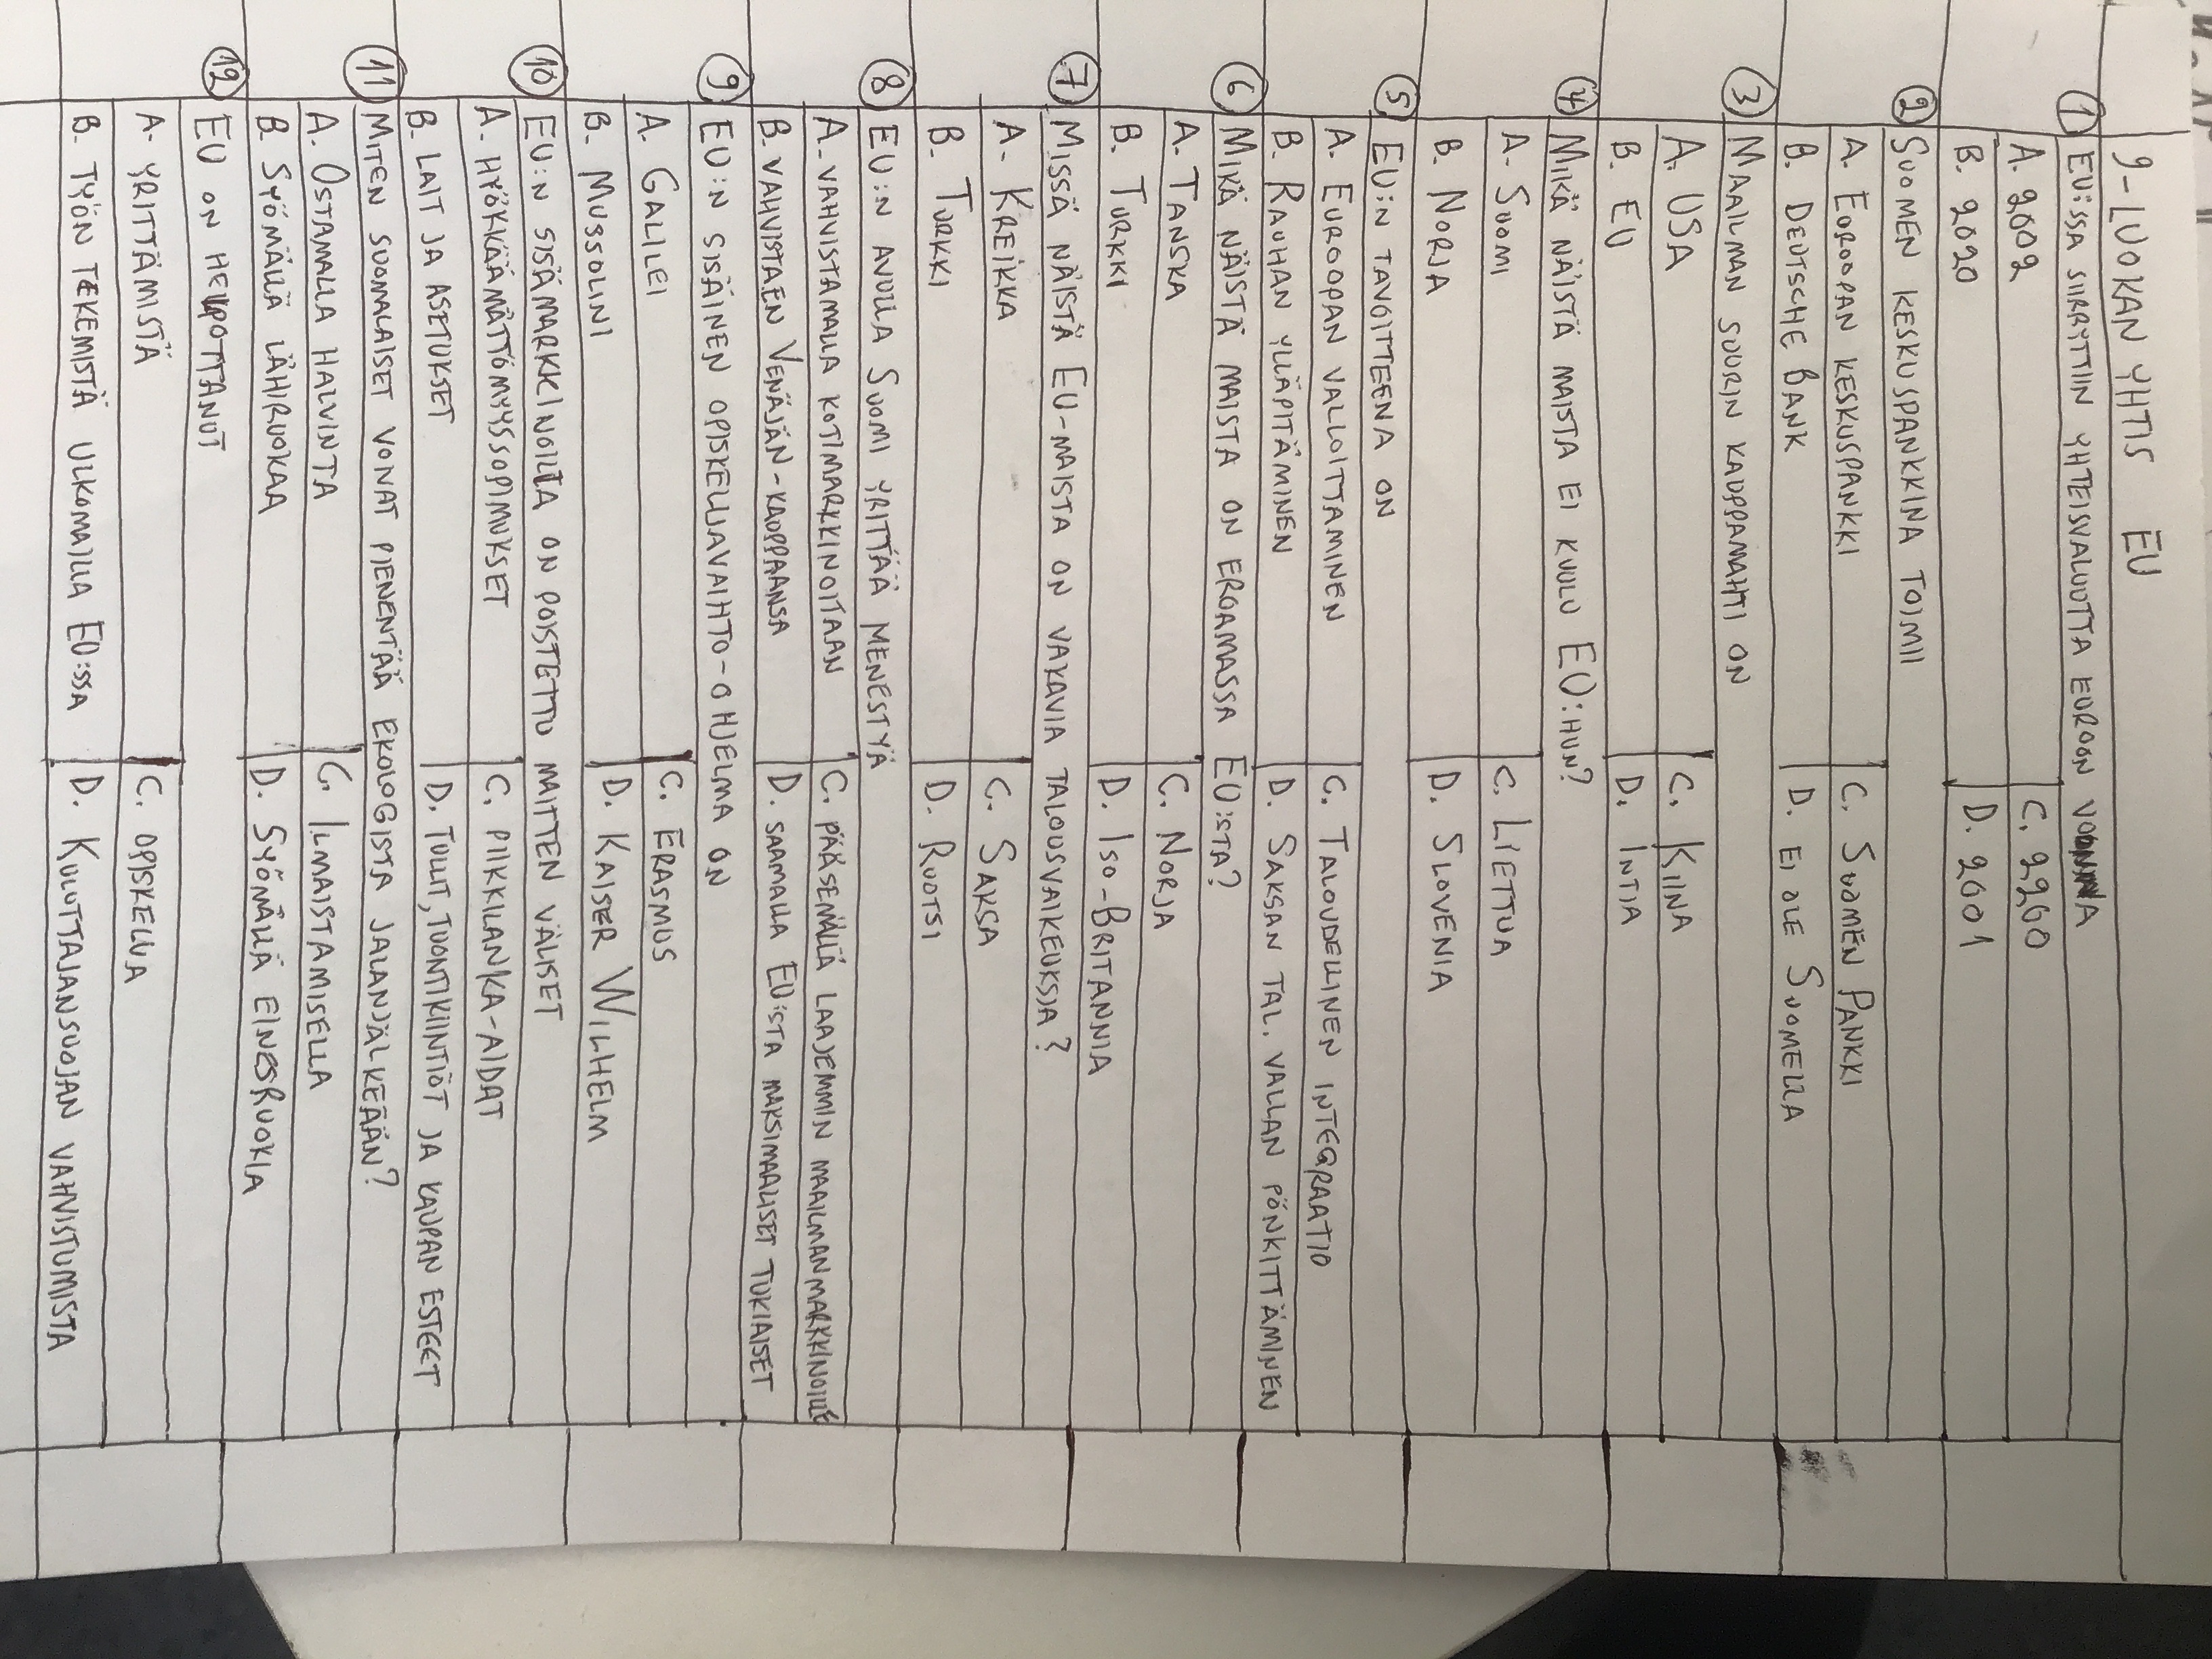 9-LUOKAN YHTIS EU
① EU:SSA SIIRRYTTIIN YHTEISVALUUTTA EUROON VUONNA
A. 2002 C. 2200
B. 2020 D. 2001
② SUOMEN KESKUSPANKKINA TOIMII
A. EUROOPAN KESKUSPANKKI C. SUOMEN PANKKI
B. DEUTSCHE BANK D. EI OLE SUOMELLA
③ MAAILMAN SUURIN KAUPPAMAHTI ON
A. USA C. KIINA
B. EU D. INTIA
④ MIKÄ NÄISTÄ MAISTA EI KUULU EU:HUN?
A. SUOMI C. LIETTUA
B. NORJA D. SLOVENIA
⑤ EU:N TAVOITTEENA ON
A. EUROOPAN VALLOITTAMINEN C. TALOUDELLINEN INTEGRAATIO
B. RAUHAN YLLÄPITÄMINEN D. SAKSAN TAL. VALLAN PÖNKITTÄMINEN
⑥ MIKÄ NÄISTÄ MAISTA ON EROAMASSA EU:STA?
A. TANSKA C. NORJA
B. TURKKI D. ISO-BRITANNIA
⑦ MISSÄ NÄISTÄ EU-MAISTA ON VAKAVIA TALOUSVAIKEUKSIA?
A. KREIKKA C. SAKSA
B. TURKKI D. RUOTSI
⑧ EU:N AVULLA SUOMI YRITTÄÄ MENESTYÄ
A. VAHVISTAMALLA KOTIMARKKINOITAAN C. PÄÄSEMÄLLÄ LAAJEMMIN MAAILMANMARKKINOILLE
B. VAHVISTAEN VENÄJÄN-KAUPPAANSA D. SAAMALLA EU:STA MAKSIMAALISET TUKIAISET
⑨ EU:N SISÄINEN OPISKELIJAVAIHTO-OHJELMA ON
A. GALILEI C. ERASMUS
B. MUSSOLINI D. KAISER WILHELM
⑩ EU:N SISÄMARKKINOILTA ON POISTETTU MAITTEN VÄLISET
A. HYÖKKÄÄMÄTTÖMYYSSOPIMUKSET C. PIIKKILANKA-AIDAT
B. LAIT JA ASETUKSET D. TULLIT, TUONTIKIINTIÖT JA KAUPAN ESTEET
⑪ MITEN SUOMALAISET VOIVAT PIENENTÄÄ EKOLOGISTA JALANJÄLKEÄÄN?
A. OSTAMALLA HALVINTA C. ILMAISTAMISELLA
B. SYÖMÄLLÄ LÄHIRUOKAA D. SYÖMÄLLÄ EINESRUOKIA
⑫ EU ON HELPOTTANUT
A. YRITTÄMISTÄ C. OPISKELUA
B. TYÖN TEKEMISTÄ ULKOMAILLA EU:SSA D. KULUTTAJANSUOJAN VAHVISTUMISTA